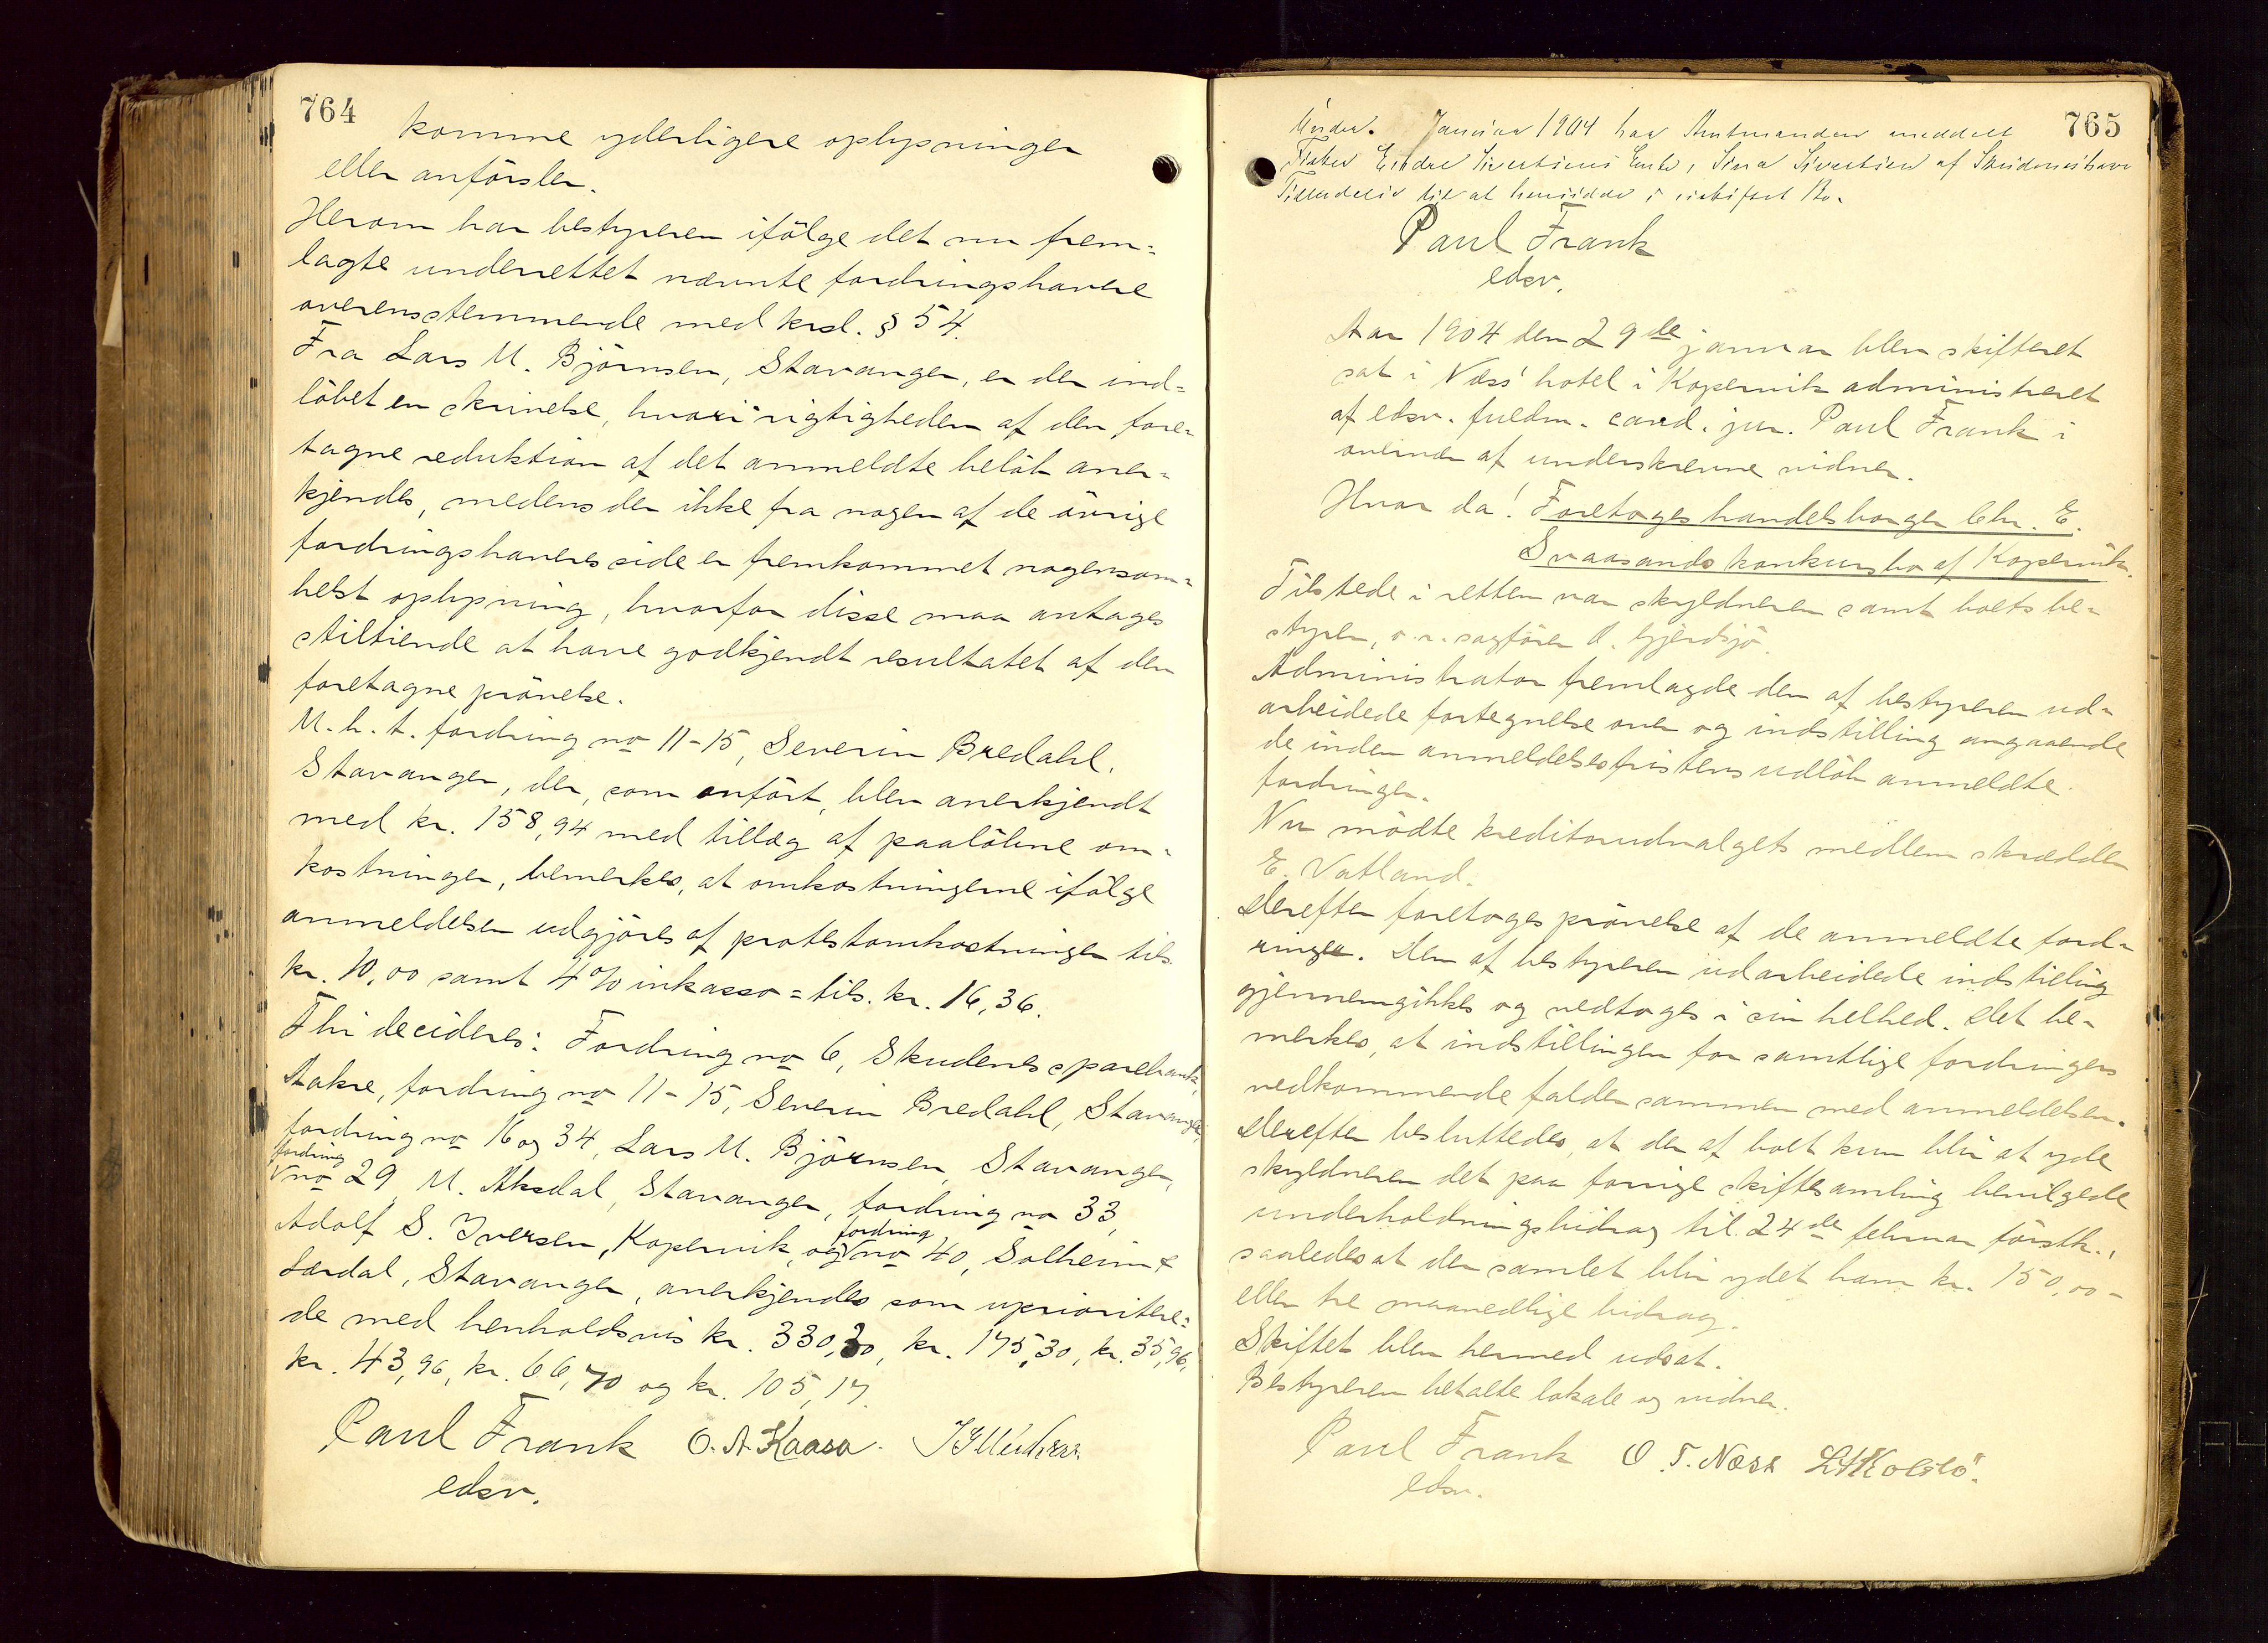 764
komme yderligere oplysninger
eller anførsler.
Herom har bestyreren ifølge det nu frem-
lagte underrettet nævnte fordringshavere
overensstemmende med krsl. § 54.
Fra Lars M. Bjørnsen, Stavanger, er der ind-
løbet en skrivelse, hvori rigtigheden af den fore-
tagne reduktion af det anmeldte beløb aner-
kjendes, medens der ikke fra nogen af de øvrige
fordringshaveres side er fremkommet nogensom-
helst oplysning, hvorfor disse maa antages
stiltiende at have godkjendt resultatet af den
foretagne prøvelse.
M. h. t. fordring no 11-15, Severin Bredahl,
Stavanger, der, som anført, blev anerkjendt
med kr. 158,94 med tillæg af paaløbne om-
kostninger, bemerkes, at omkostningerne ifølge
anmeldelsen udgjøres af protestomkostninger tils.
kr. 10,00 samt 4 % inkasso = tils. kr. 16,36.
Thi decideres: Fordring no 6, Skudenes sparebank,
Aakre, fordring no 11-15, Severin Bredahl, Stavanger,
fordring no 16 og 34, Lars M. Bjørnsen, Stavanger,
fordring no 29, M. Aksdal, Stavanger, fordring no 33,
Adolf S. Iversen, Kopervik, og fordring no 40, Solheim &
Lærdal, Stavanger, anerkjendes som uprioritere-
de med henholdsvis kr. 330,30, kr. 175,30, kr. 35,96,
kr. 43,96, kr. 66,70 og kr. 105,17.
Paul Frank O. A. Kaasa.
edsv.
765
Under. Januar 1904 har Amtmanden meddelt
Fisker Endre Sivertsens Enke, Sina Sivertsen af Skudeneshavn
Tilladelse til at hensidde i uskiftet Bo.
Paul Frank
edsv.
Aar 1904 den 29de januar blev skifteret
sat i Næss' hotel i Kopervik administreret
af edsv. fuldm. cand. jur. Paul Frank i
overvær af underskrevne vidner.
Hvor da! Foretoges handelsborger Chr. E.
Svaasands konkursbo af Kopervik.
Tilstede i retten var skyldneren samt boets be-
styrer, o.r. sagfører O. Gjerdsjø.
Administrator fremlagde den af bestyreren ud-
arbeidede fortegnelse over og indstilling angaaende
de inden anmeldelsesfristens udløb anmeldte
fordringer.
Nu mødte kreditorudvalgets medlem skrædder
E. Vatland.
Derefter foretoges prøvelse af de anmeldte ford-
ringer. Den af bestyreren udarbeidede indstilling
gjennemgikkes og vedtoges i sin helhed. Det be-
merkes, at indstillingen for samtlige fordringers
vedkommende falder sammen med anmeldelsen.
Derefter besluttedes, at der af boet kun blir at yde
skyldneren det paa forrige skiftesamling bevilgede
underholdningsbidrag til 24de februar førstk.,
saaledes at der samlet blir ydet ham kr. 150,00 -
eller tre maanedlige bidrag.
Skiftet blev hermed udsat.
Bestyreren betalte lokale og vidner.
Paul Frank O. T. Næss
edsv.